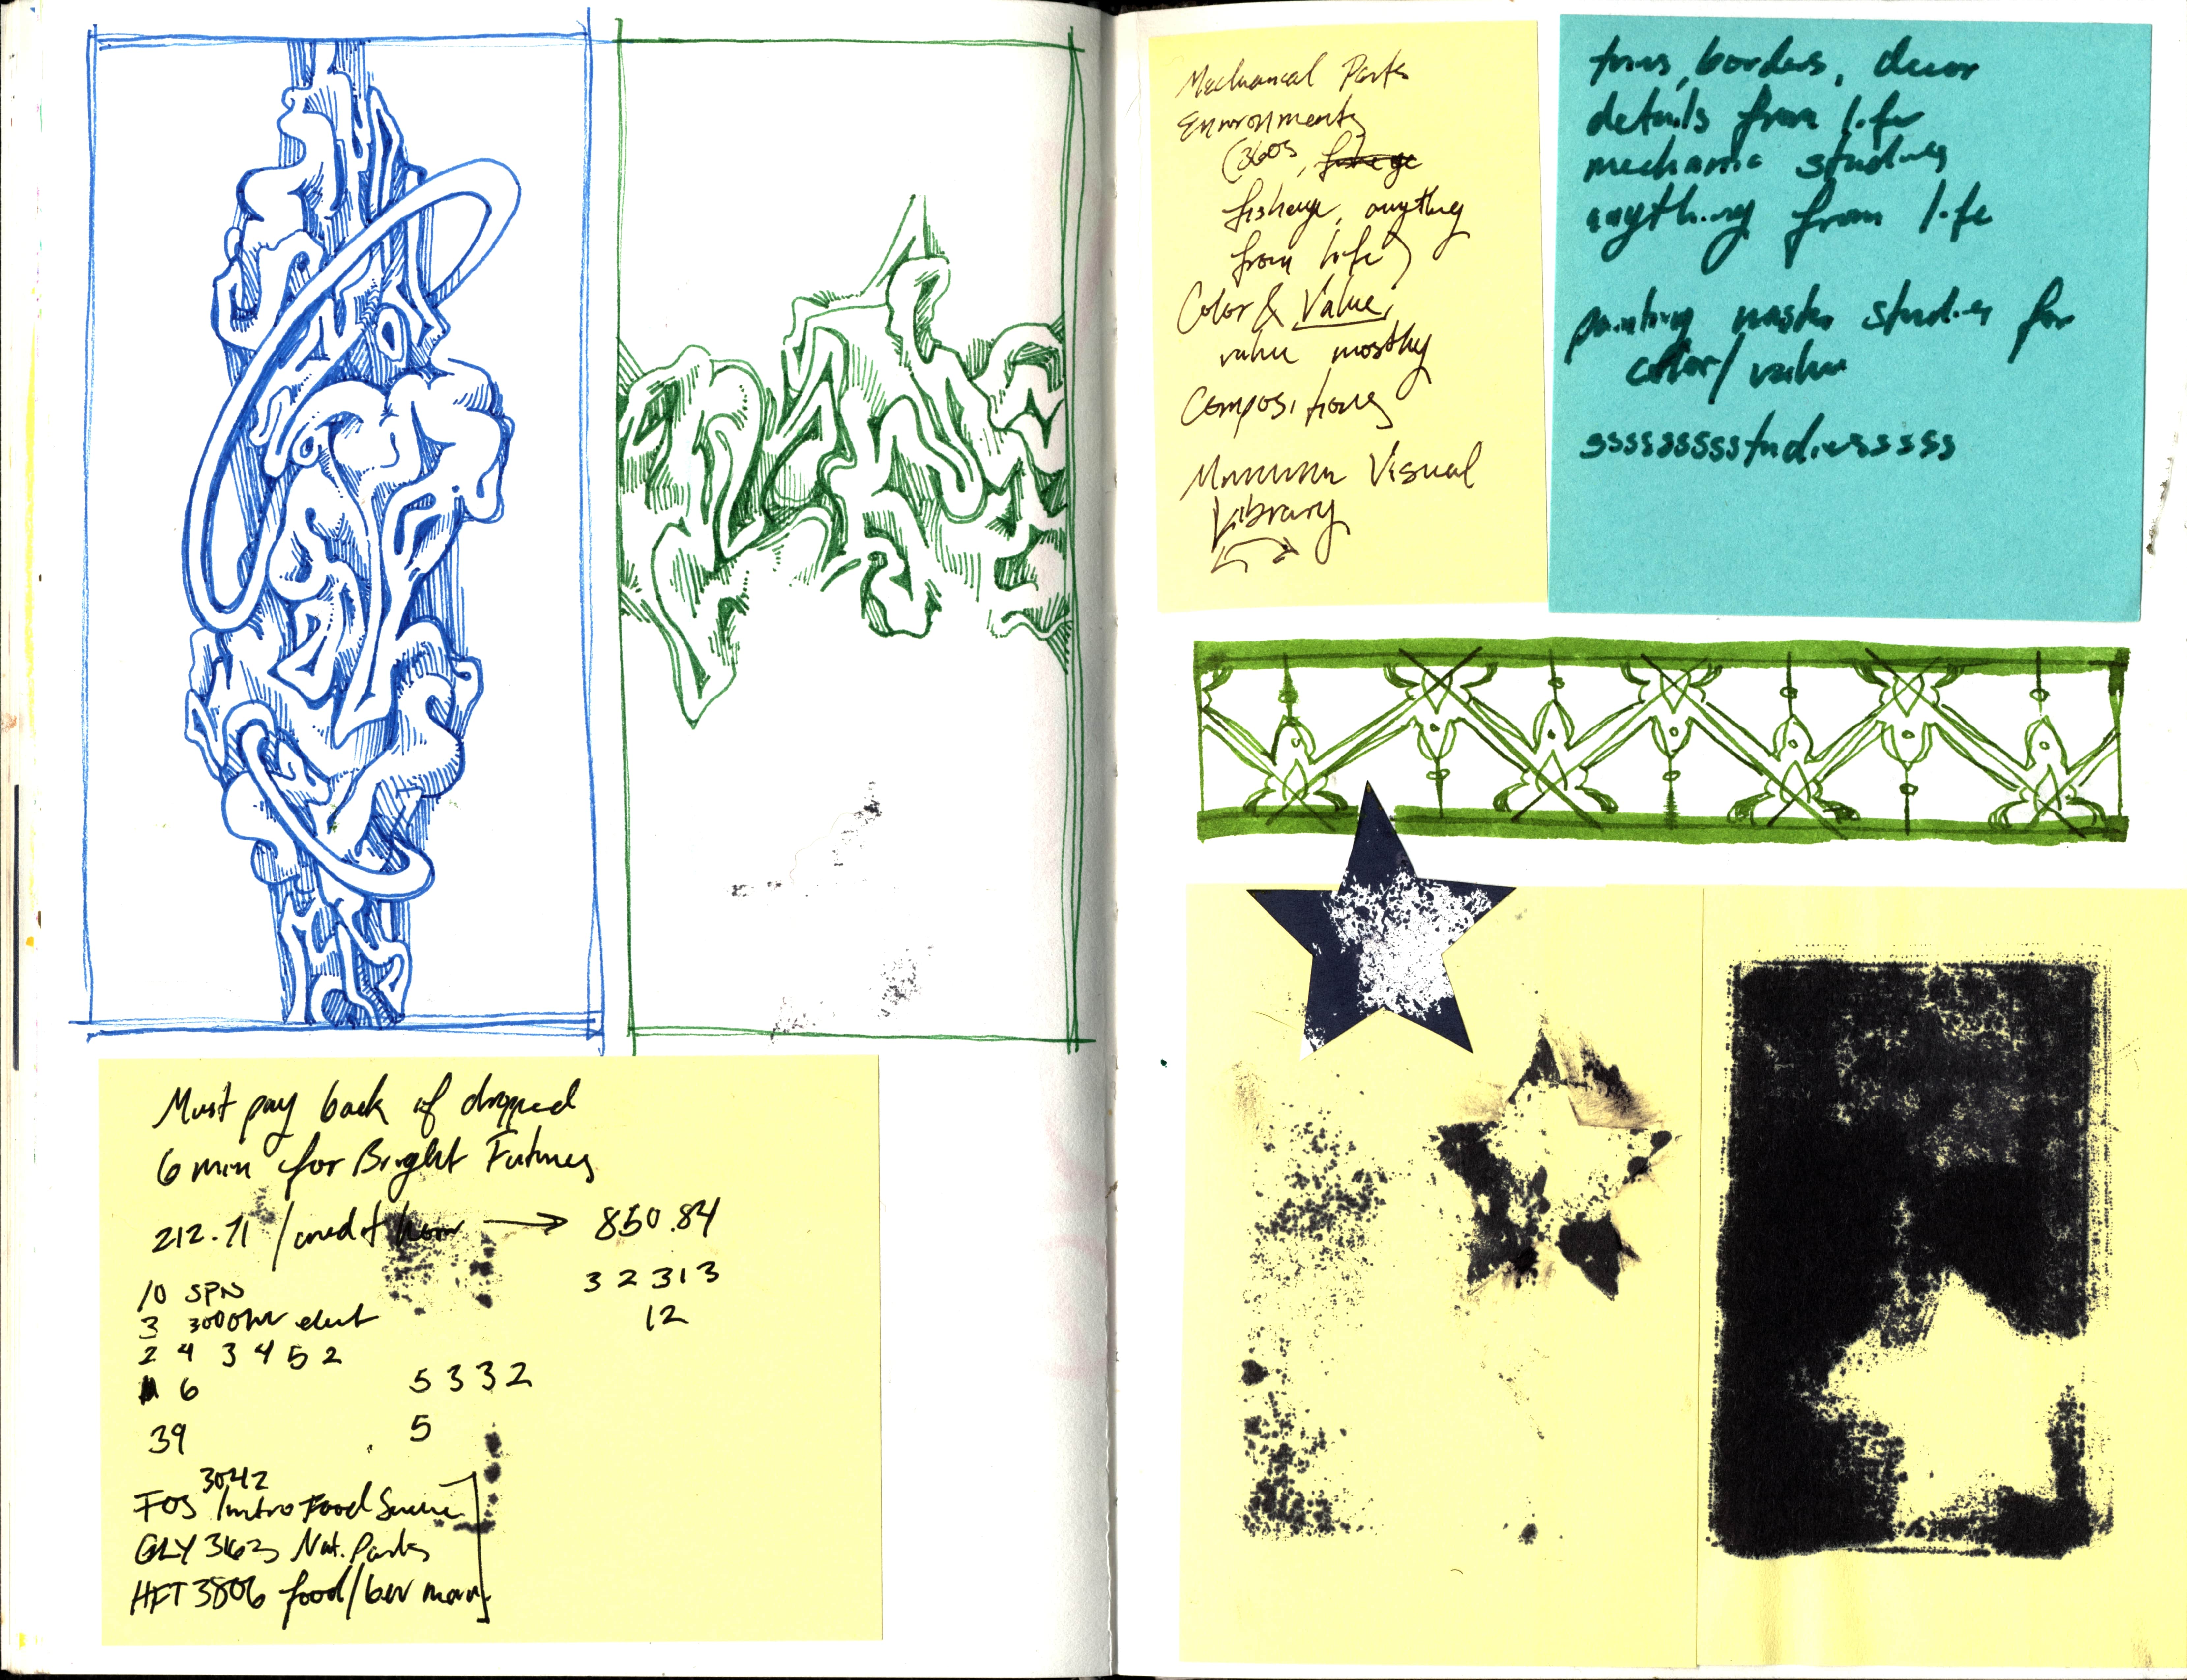 Mechanical Parts
Environments
(360s,
fisheye, anything
from life)
Color & Value,
value mostly
Compositions
Visual
Library
trims, borders, decor
details from life
mechanic studies
anything from life
painting master studies for
color/value
sssssssssstudiesssss
Must pay back if dropped
6 min for Bright Futures
212.71 /credit hour → 850.84
10 SPN
3 2 3 1 3
3 3000 elect
12
2 4 3 4 5 2
6
5 3 3 2
39
5
3042
FOS Intro Food Science
GLY 3163 Nat. Parks
HFT 3806 food/bev man.